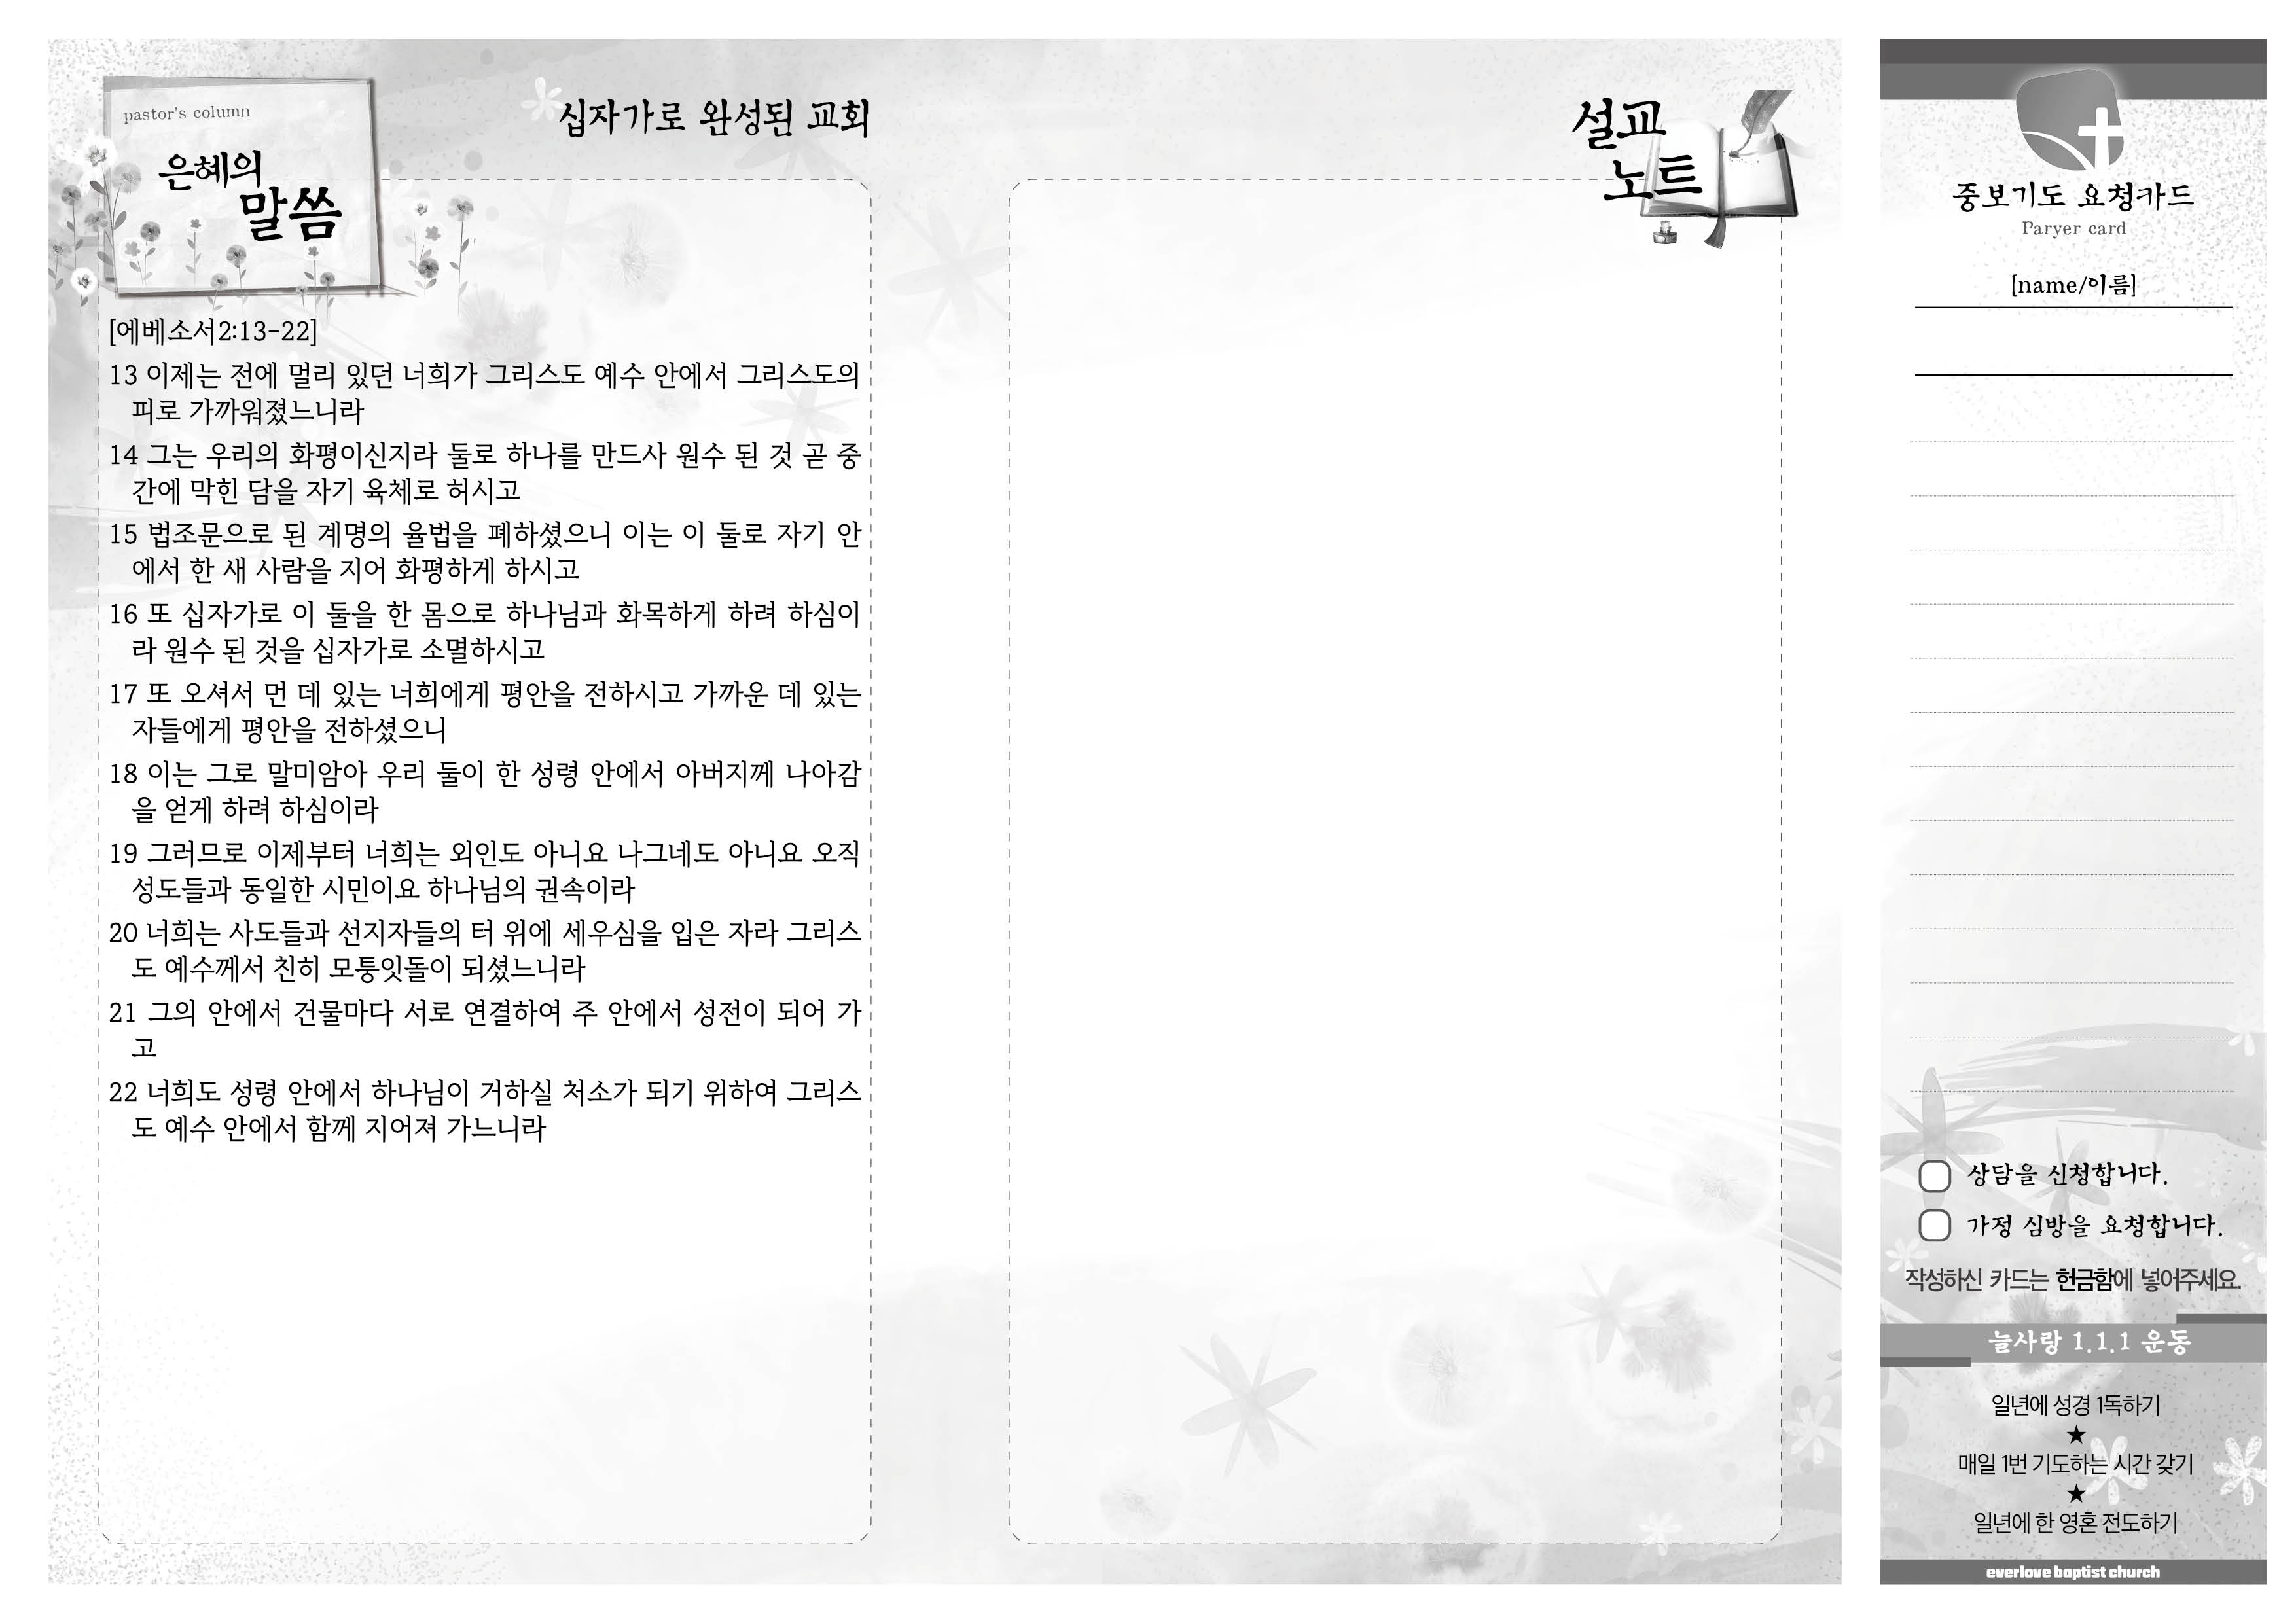 pastor's column
은혜의
말씀
십자가로 완성된 교회
[에베소서2:13-22]
13 이제는 전에 멀리 있던 너희가 그리스도 예수 안에서 그리스도의
피로 가까워졌느니라
14 그는 우리의 화평이신지라 둘로 하나를 만드사 원수 된 것 곧 중
간에 막힌 담을 자기 육체로 허시고
15 법조문으로 된 계명의 율법을 폐하셨으니 이는 이 둘로 자기 안
에서 한 새 사람을 지어 화평하게 하시고
16 또 십자가로 이 둘을 한 몸으로 하나님과 화목하게 하려 하심이
라 원수 된 것을 십자가로 소멸하시고
17 또 오셔서 먼 데 있는 너희에게 평안을 전하시고 가까운 데 있는
자들에게 평안을 전하셨으니
18 이는 그로 말미암아 우리 둘이 한 성령 안에서 아버지께 나아감
을 얻게 하려 하심이라
19 그러므로 이제부터 너희는 외인도 아니요 나그네도 아니요 오직
성도들과 동일한 시민이요 하나님의 권속이라
20 너희는 사도들과 선지자들의 터 위에 세우심을 입은 자라 그리스
도 예수께서 친히 모퉁잇돌이 되셨느니라
21 그의 안에서 건물마다 서로 연결하여 주 안에서 성전이 되어 가
고
22 너희도 성령 안에서 하나님이 거하실 처소가 되기 위하여 그리스
도 예수 안에서 함께 지어져 가느니라
설교
노트
중보기도 요청카드
Paryer card
[name/이름]
상담을 신청합니다.
가정 심방을 요청합니다.
작성하신 카드는 헌금함에 넣어주세요.
늘사랑 1.1.1 운동
일년에 성경 1독하기
★
매일 1번 기도하는 시간 갖기
★
일년에 한 영혼 전도하기
everlove baptist church